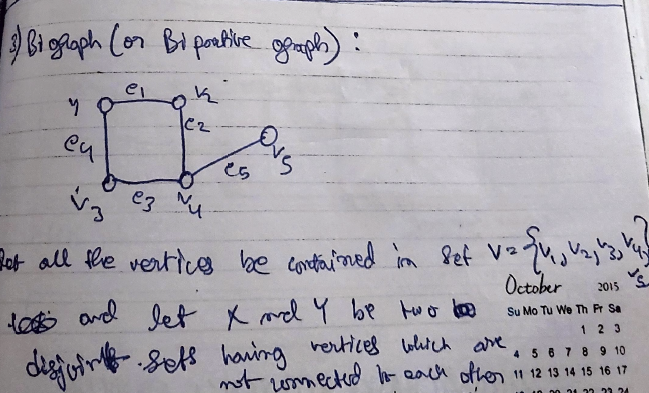 3) Bigraph (or Bi partive graph) :
e1
V2
e2
e4
V5
e5
V3
e3
V4
all the vertices be contained in set V = {V1, V2, V3, V4,
V5
October 2015
and let X and Y be two
Su Mo Tu We Th Fr Sa
1 2 3
disjoint sets having vertices which are
4 5 6 7 8 9 10
not connected to each other
11 12 13 14 15 16 17